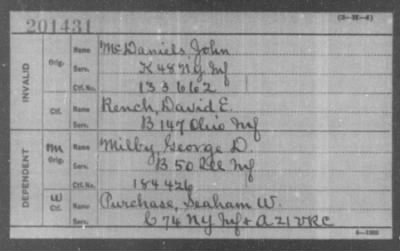 201431
(3-35-4)
INVALID
Orig.
Name McDaniels, John
Serv. K 48 NY Inf
Ctf. No. 133662
Ctf.
Name Rench, David E.
Serv. B 147 Ohio Inf
DEPENDENT
M
Orig.
Name Milby, George D.
Serv. B 50 Ill Inf
Ctf. No. 184426
W
Ctf.
Name Purchase, Seaham W.
Serv. C 74 NY Inf + A 21 VRC